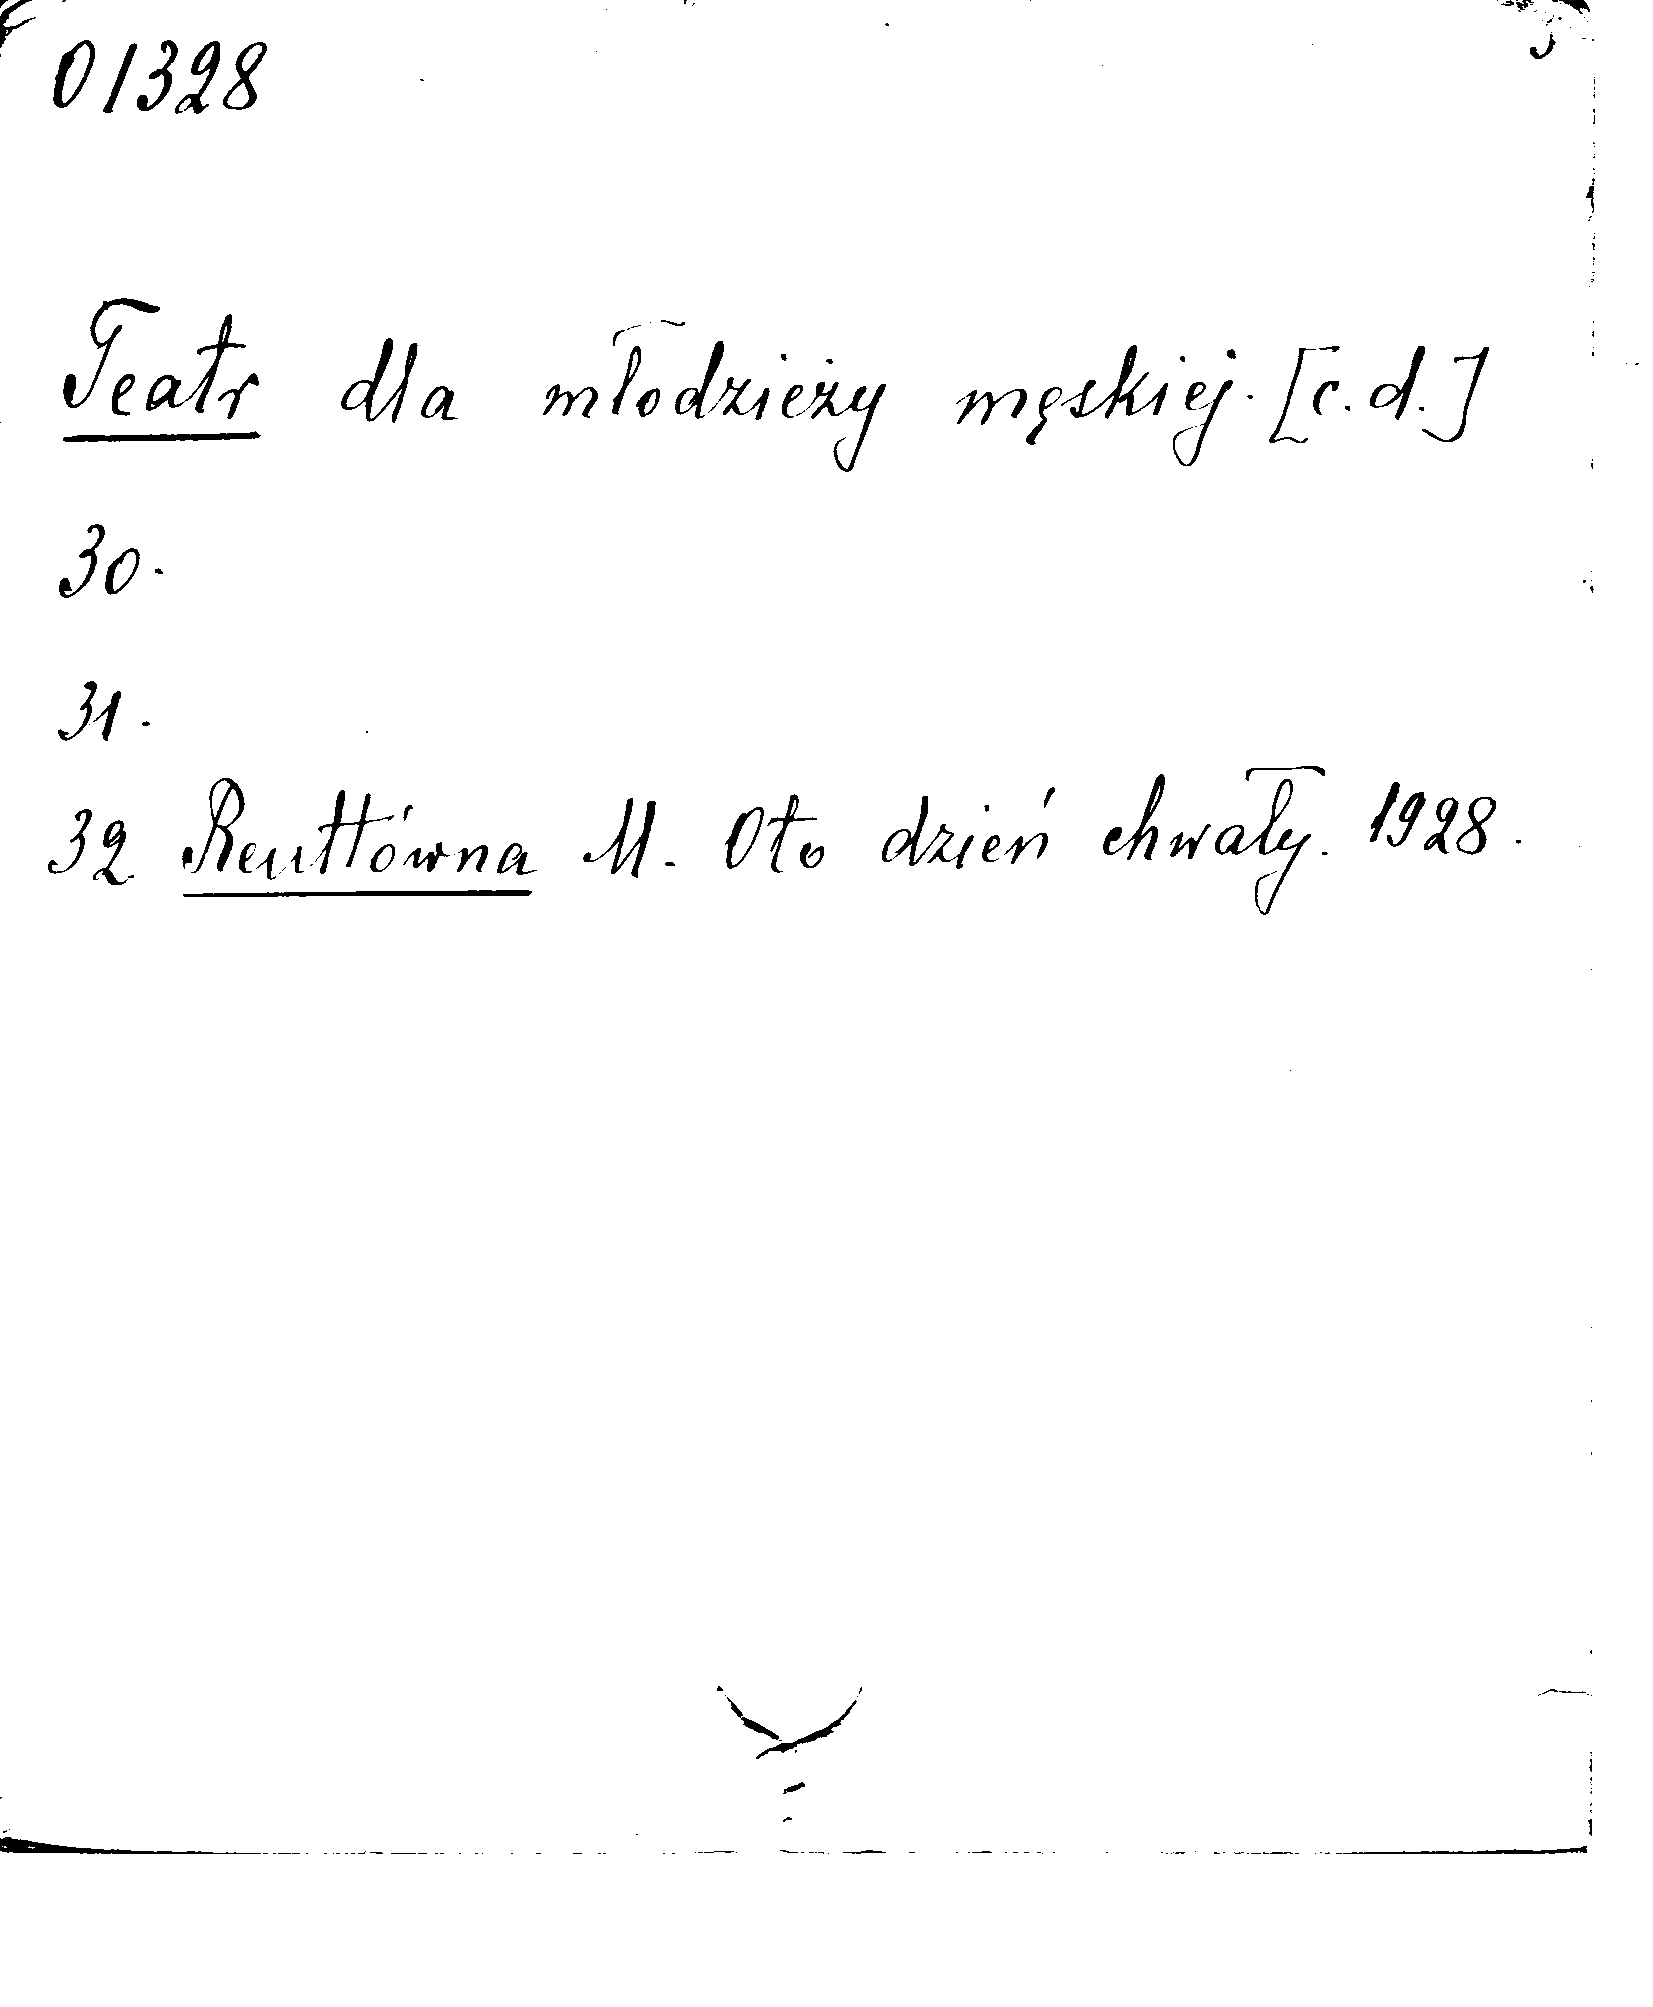 01328
Teatr dla młodzieży męskiej. [c.d.]
30.
31.
32. Reuttówna M. Oto dzień chwały. 1928.